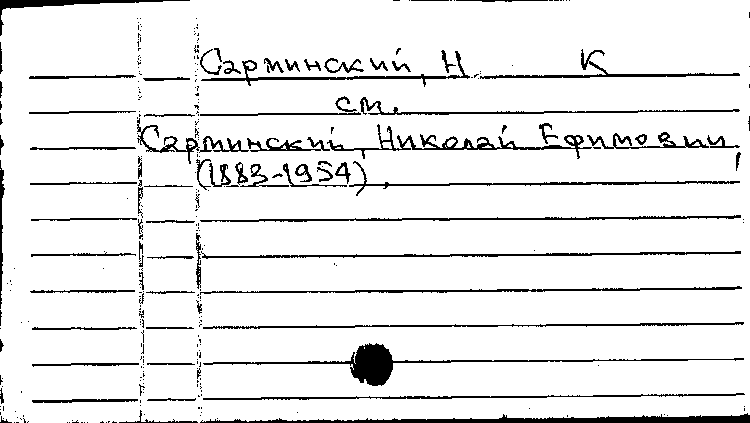 Сарминский, Н К
см.
Сарминский, Николай Ефимович,
(1883-1954).